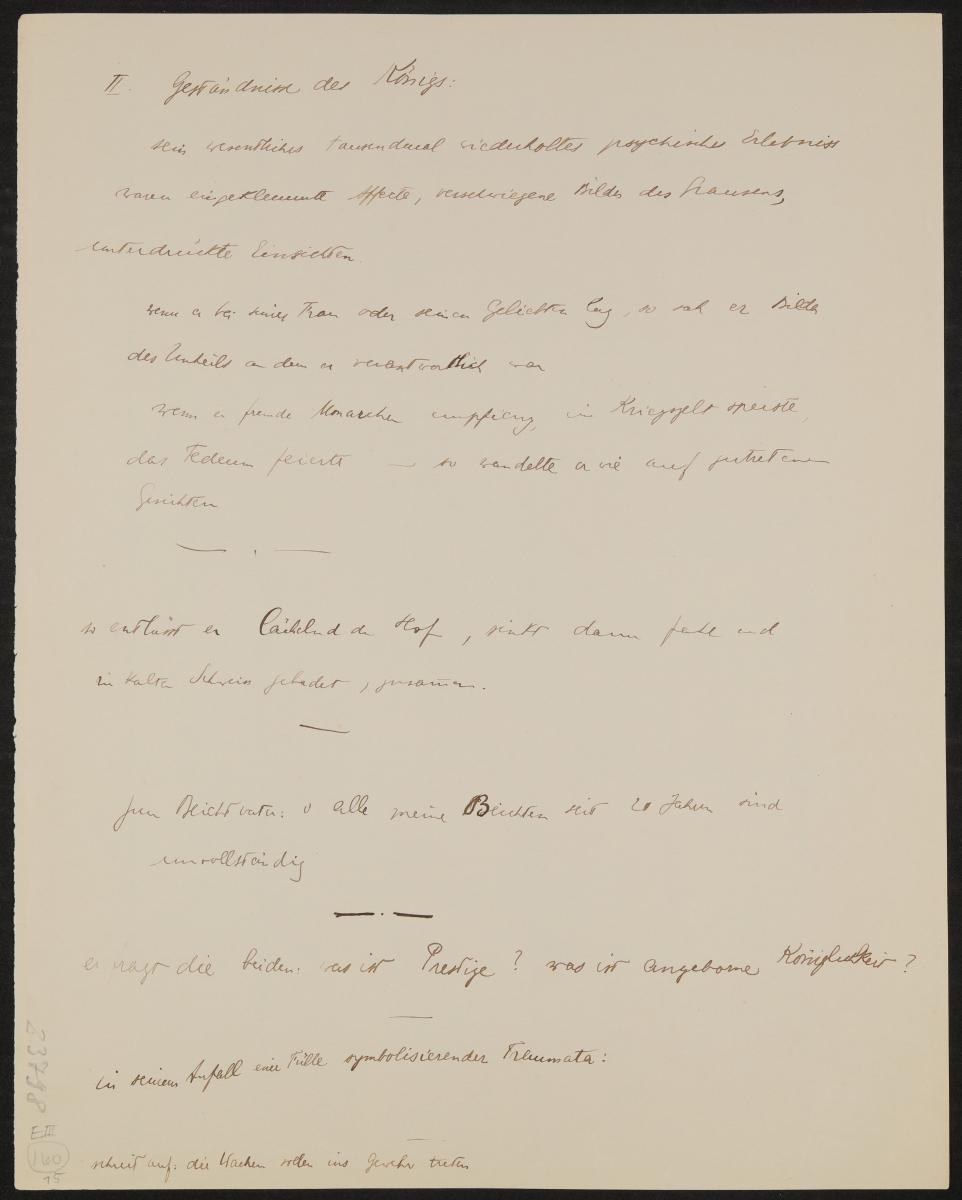 II. Geständnisse des Königs:
sein wesentliches tausendmal wiederholtes psychisches Erlebniss
waren eingeklemmte Affecte, verschwiegene Bilder des Grausens,
unterdrückte Einsichten.
wenn er bei seiner Frau oder seinen Geliebten lag, so sah er Bilder
des Unheils an dem er verantwortlich war
wenn er fremde Monarchen empfieng, im Kriegszelt speiste,
das Tedeum feierte — so wandelte er wie auf zertretenen
Gesichtern
— . —
so entlässt er lächelnd den Hof, sinkt dann fahl und
in kalten Schweiss gebadet, zusammen.
—
zum Beichtvater: o alle meine Beichten seit 20 Jahren sind
unvollständig
— . —
er fragt die beiden: was ist Prestige? was ist angeborne Königlichkeit?
—
in seinem Anfall eine Fülle symbolisierender Traumata:
—
schreit auf: die Wachen sollen ins Gewehr treten
23798
E III
160
15